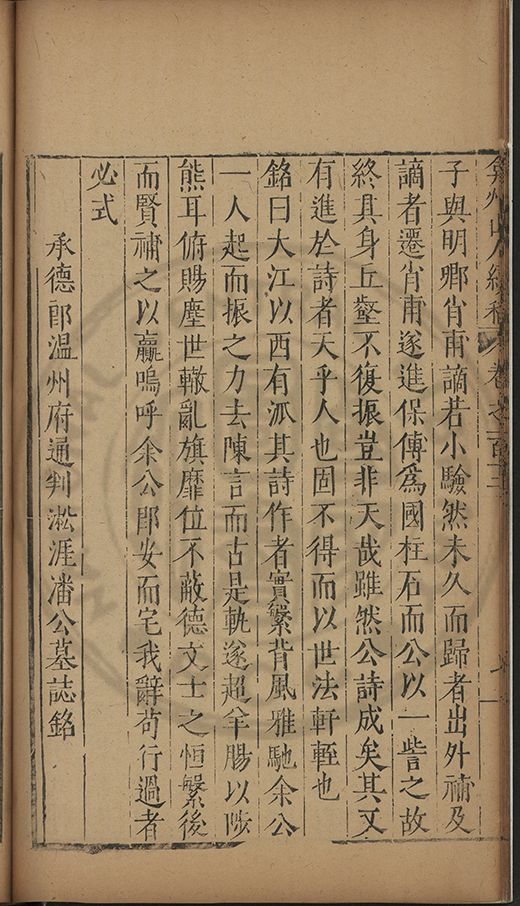 弇州山人續稿 卷之一百十二
子與明卿肖甫謫若小驗然未久而歸者出外補及
謫者遷肖甫遂進保傅爲國柱石而公以一眚之故
終其身丘壑不復振豈非天哉雖然公詩成矣其文
有進於詩者天乎人也固不得而以世法軒輊也
銘曰大江以西有派其詩作者實繁背風雅馳余公
一人起而振之力去陳言而古是軌遂超羊腸以陟
熊耳俯賜塵世轍亂旗靡位不敵德文士之恒繫後
而賢補之以贏嗚呼余公郎安而宅我辭苟行過者
必式
承德郎温州府通判淞涯潘公墓誌銘